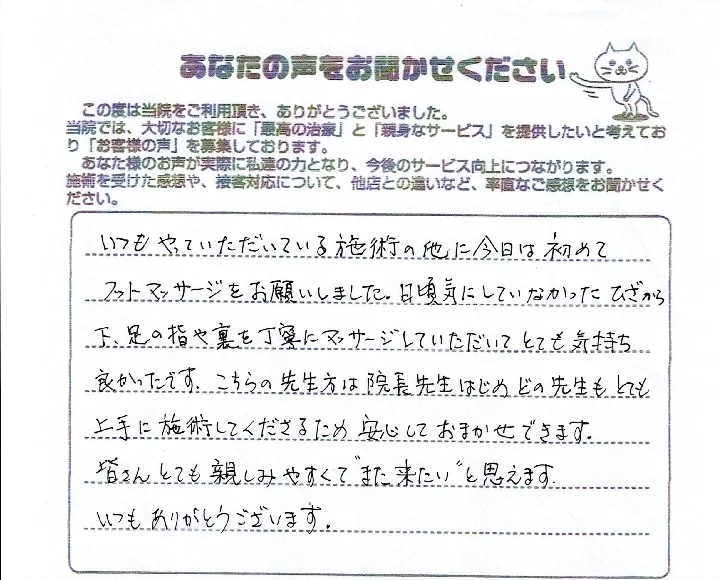 あなたの声をお聞かせください
この度は当院をご利用頂き、ありがとうございました。
当院では、大切なお客様に「最高の治療」と「親身なサービス」を提供したいと考えてお
り「お客様の声」を募集しております。
あなた様のお声が実際に私達の力となり、今後のサービス向上につながります。
施術を受けた感想や、接客対応について、他店との違いなど、率直なご感想をお聞かせく
ださい。
いつもやっていただいている施術の他に今日は初めて
フットマッサージをお願いしました。日頃気にしていなかったひざから
下、足の指や裏を丁寧にマッサージしていただいてとても気持ち
良かったです。こちらの先生方は院長先生はじめどの先生もとても
上手に施術してくださるため安心しておまかせできます。
皆さんとても親しみやすくで"また来たい"と思えます。
いつもありがとうございます。